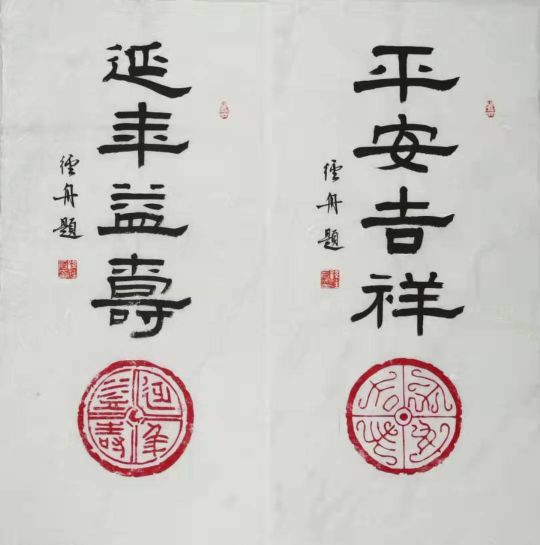 平安吉祥
徑舟題
延年益壽
徑舟題
延年益壽